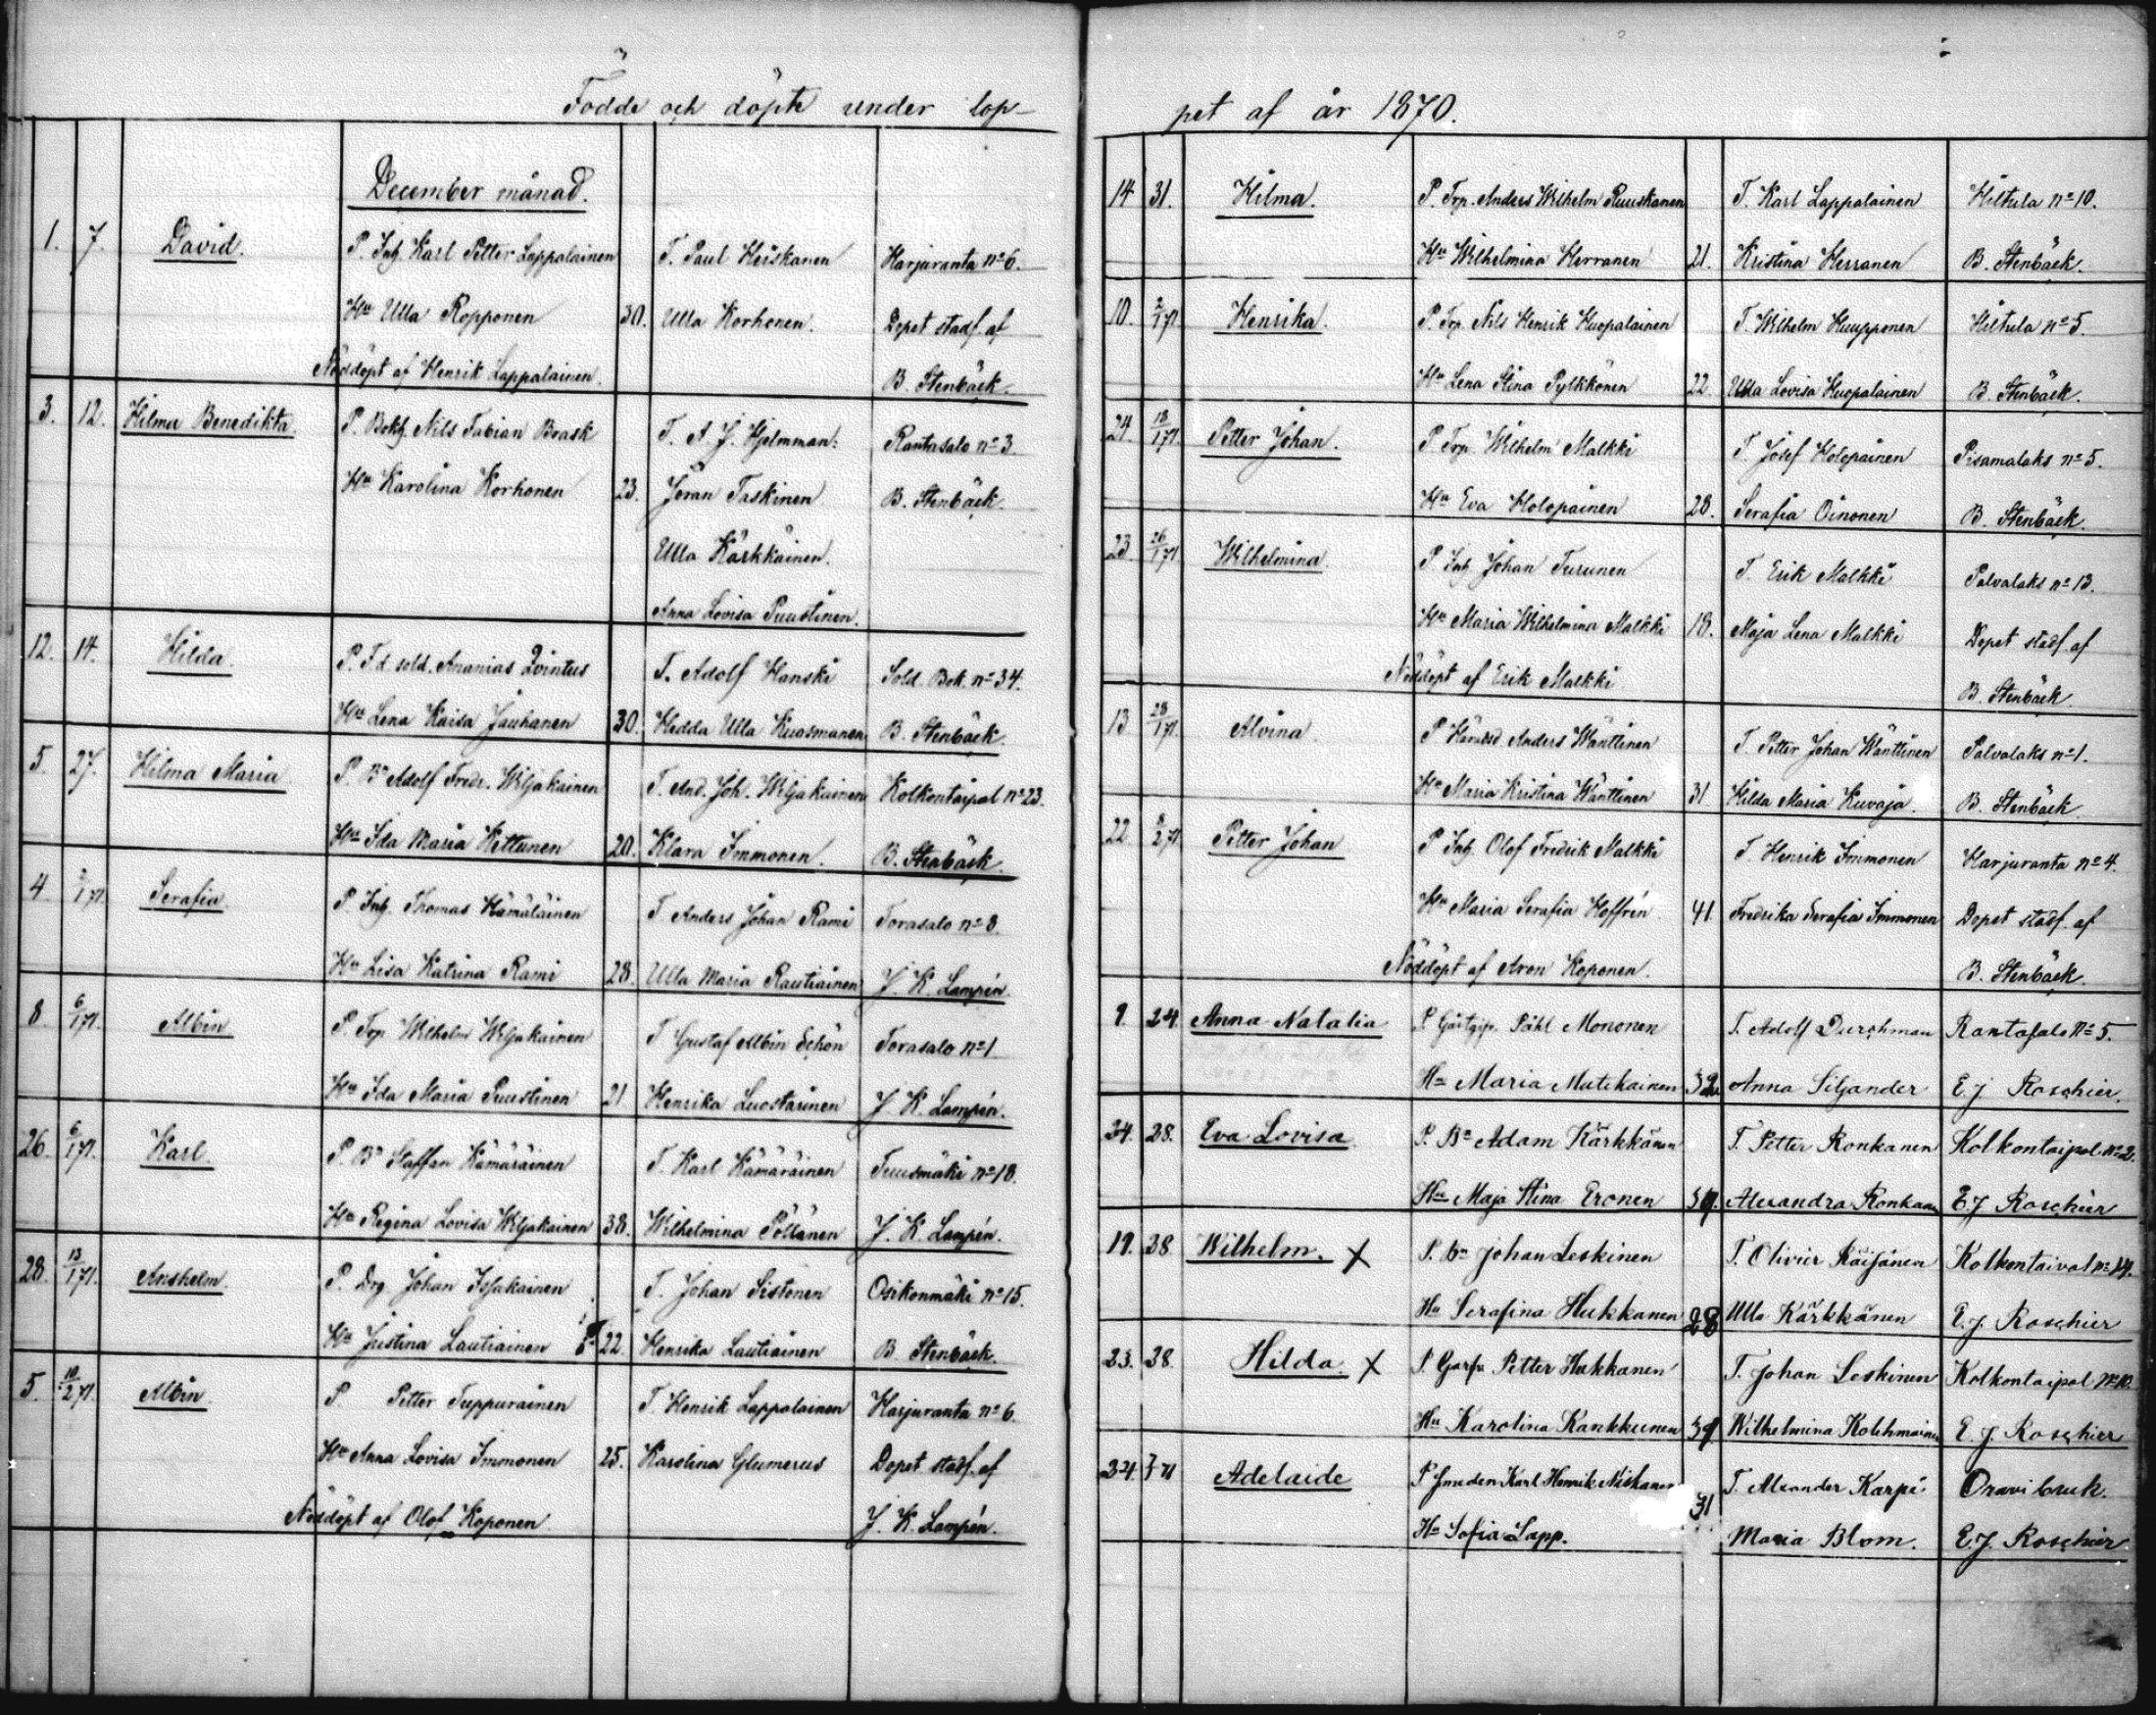 Födde och döpte under lop-
December månad.
1. 7. David. P. Inh. Karl Petter Lappalainen T. Paul Heiskanen Harjuranta nº 6.
Hu Ulla Ropponen 30. Ulla Korhonen. Dopet stadf. af
Nöddöpt af Henrik Lappalainen. B. Stenbäck.
3. 12. Hilma Benedikta. P. Bokh. Nils Fabian Brask T. A. J. Hjelmman: Rantasalo nº 3.
Hu Karolina Korhonen 23. Jöran Taskinen B. Stenbäck.
Ulla Kärkkäinen.
Anna Lovisa Puustinen.
12. 14. Hilda. P. F.d. sold. Ananias Qvintus T. Adolf Hanski Sold. Bok. nº 34.
Hu Lena Kaisa Jauhanen 30. Hedda Ulla Kuosmanen B. Stenbäck.
5. 27. Hilma Maria P. Bn Adolf Fredr. Wiljakainen T. And. Joh. Wiljakainen Kolkontaipal nº 23.
Hu Ida Maria Kettunen 20. Klara Immonen. B. Stenbäck.
4. 2/1 71. Serafia P. Inh. Thomas Hämäläinen T. Anders Johan Rami Torasalo nº 8.
Hu Lisa Katrina Rami 28. Ulla Maria Rautiainen J. K. Lampén.
8. 6/1 71. Albin P. Trp. Wilhelm Wiljakainen T. Gustaf Albin Schön Torasalo nº 1
Hu Ida Maria Puustinen 21 Henrika Luostarinen J. K. Lampén.
26. 6/1 71. Karl. P. Bn Staffan Kämäräinen T. Karl Kämäräinen Tuusmäki nº 18.
Hu Regina Lovisa Wiljakainen 38. Wilhelmina Pöllänen J. K. Lampén.
28. 13/1 71. Anshelm. P. Drg. Johan Iljakainen T. Johan Sistonen Osikonmäki nº 15.
Hu Justina Lautiainen 22. Henrika Lautiainen B. Stenbäck.
5. 10/2 71. Albin P. Petter Tuppurainen T. Henrik Lappalainen Harjuranta nº 6.
Hu Anna Lovisa Immonen 25. Karolina Glumerus Dopet stadf. af
Nöddöpt af Olof Koponen J. K. Lampén.
pet af år 1870.
14 31. Hilma. P. Trp. Anders Wilhelm Ruuskanen T. Karl Lappalainen Hiltula nº 10.
Hu Wilhelmina Herranen 21. Kristina Herranen B. Stenbäck.
10. 2/1 71. Henrika. P. Trp. Nils Henrik Huopalainen T. Wilhelm Huupponen Hiltula nº 5.
Hu Lena Stina Pylkkönen 22. Ulla Lovisa Huopalainen B. Stenbäck.
24. 18/1 71. Petter Johan. P. Trp. Wilhelm Malkki T. Josef Holopainen Pisamalaks nº 5.
Hu Eva Holopainen 28. Serafia Oinonen B. Stenbäck.
23. 26/1 71 Wilhelmina P. Inh. Johan Turunen T. Erik Malkki Palvalaks nº 13.
Hu Maria Wilhelmina Malkki 18. Maja Lena Malkki Dopet stadf. af
Nöddöpt af Erik Malkki B. Stenbäck.
13 28/1 71. Alvina. P. Anders Wänttinen T. Petter Johan Wänttinen Palvalaks nº 1.
Hu Maria Kristina Wänttinen 31 Hilda Maria Kuvaja. B. Stenbäck.
22 2 71. Petter Johan P. Inh. Olof Fredrik Malkki T. Henrik Immonen Harjuranta nº 4.
Hu Maria Serafia Hoffrén 41. Fredrika Serafia Immonen Dopet stadf. af
Nöddöpt af Aron Koponen. B. Stenbäck.
9. 24. Anna Natalia P. Gästgifv. Påhl Mononen T. Adolf Durchman Rantasalo Nº 5.
Hu Maria Matikainen 32 Anna Siljander E. J. Roschier.
24. 28. Eva Lovisa. P. Bn Adam Kärkkänen T. Petter Ronkanen Kolkontaipal nº 2.
Hu Maja Stina Eronen Alexandra Ronkanen E. J. Roschier
19. 28 Wilhelm. X P. Bn Johan Leskinen T. Olivier Räisänen Kolkontaival nº 14.
Hu Serafina Hukkanen 28 Ulla Kärkkänen E. J. Roschier
23. 28. Hilda. X P. Petter Hukkanen T. Johan Leskinen Kolkontaipal Nº 10.
Hu Karolina Kankkunen 39. Wilhelmina Kolehmainen E. J. Roschier
24. 71 Adelaide P. Smeden Karl Henrik Niskanen T. Alexander Karpi Oravi bruk.
Hu Sofia Lapp. 31 Maria Blom. E. J. Roschier.